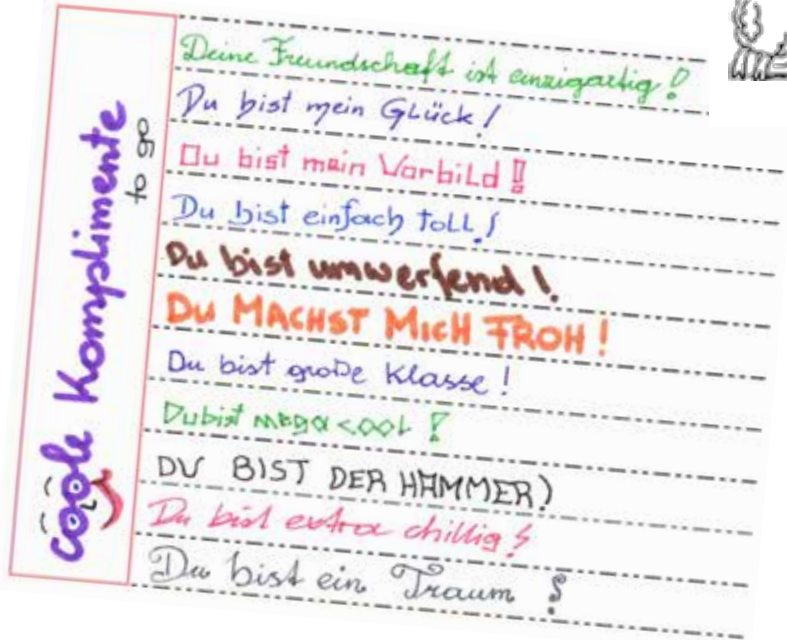 coole Komplimente
Deine Freundschaft ist einzigartig!
Du bist mein Glück!
Du bist mein Vorbild!!
Du bist einfach toll!
Du bist umwerfend!
Du MACHST MICH FROH!
Du bist große Klasse!
Du bist mega cool!
DU BIST DER HAMMER!
Du bist extra chillig!
Du bist ein Traum!